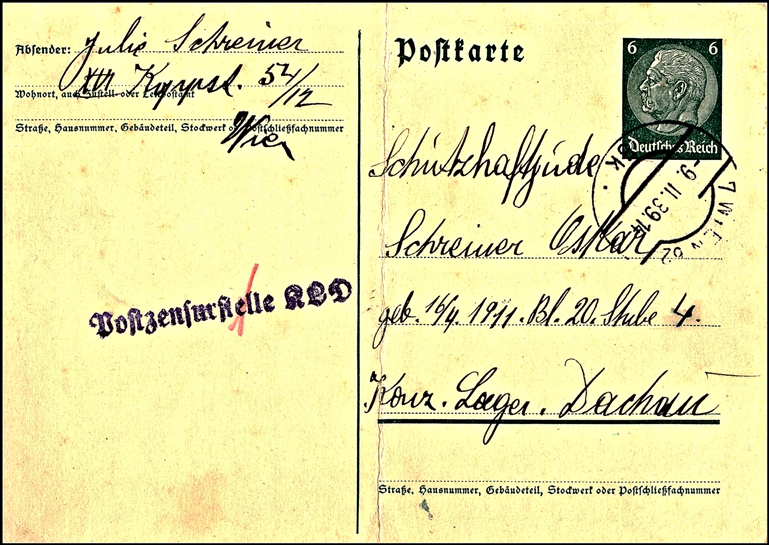 Absender: Julie Schreiner
XII Koppst. 54/12
Wohnort, auch Zustell- oder Leitpostamt
Wien
Straße, Hausnummer, Gebäudeteil, Stockwerk oder Postschließfachnummer
Postzensurstelle KLD
Postkarte
6 6
Deutsches Reich
WIEN 62
-9.II.39.
Schutzhaftjude
Schreiner Oskar
geb. 16/4 1911. Bl. 20. Stube 4.
Konz. Lager. Dachau
Straße, Hausnummer, Gebäudeteil, Stockwerk oder Postschließfachnummer